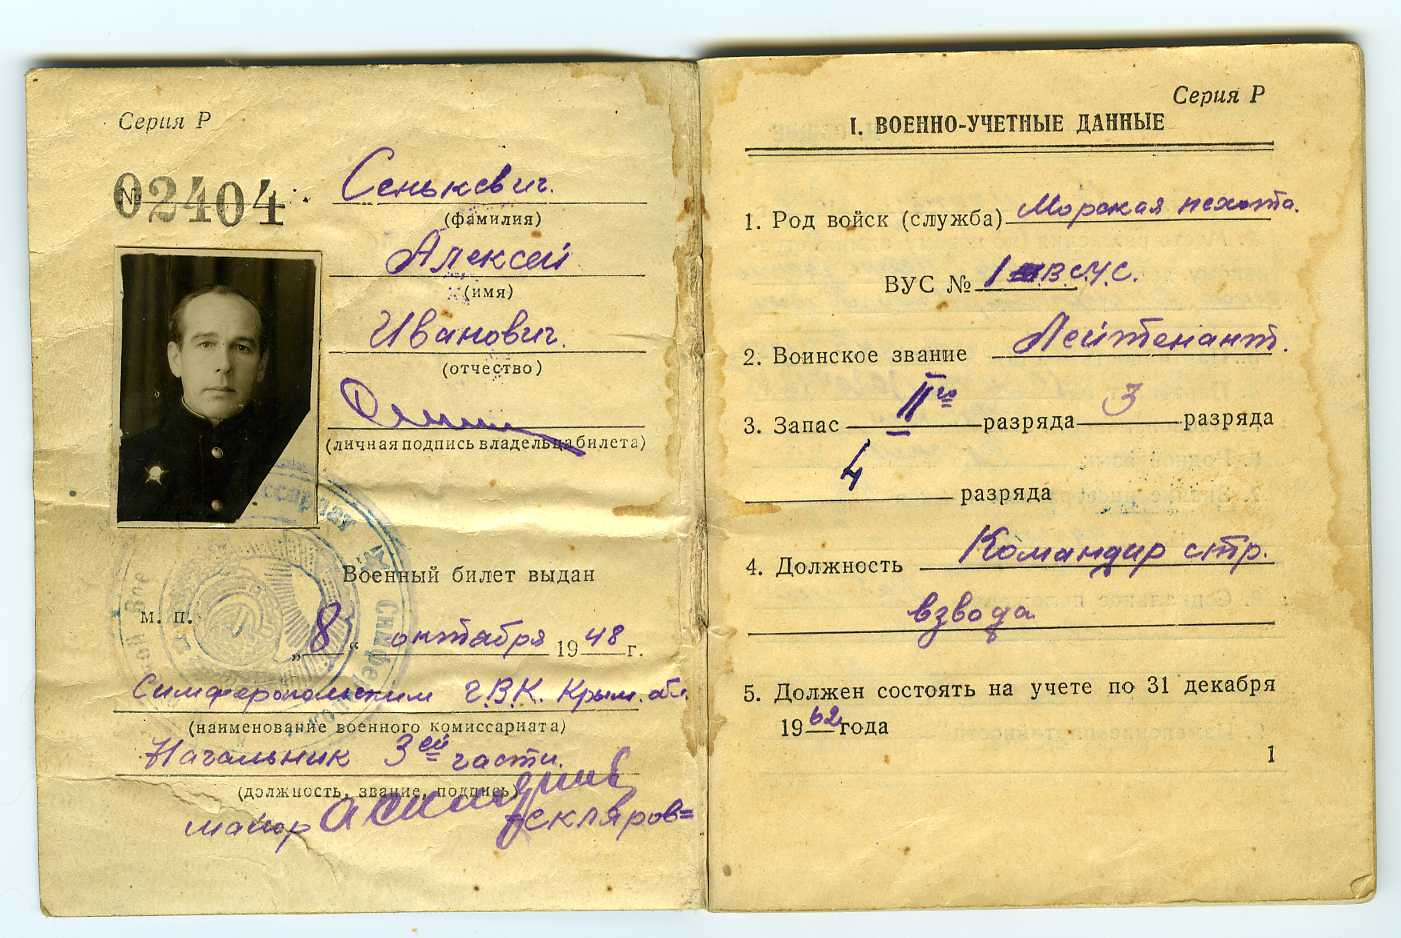 Серия Р
№ 02404
Сенькевич.
(фамилия)
Алексей
(имя)
Иванович.
(отчество)
(личная подпись владельца билета)
Военный билет выдан
м. п.
„8“ октября 1948 г.
Симферопольским Г.В.К. Крым. обл.
(наименование военного комиссариата)
Начальник 3ей части.
(должность, звание, подпись)
майор
Скляров=
Серия Р
I. ВОЕННО-УЧЕТНЫЕ ДАННЫЕ
1. Род войск (служба) Морская пехота.
ВУС № 1 В.С.У.С.
2. Воинское звание Лейтенант.
3. Запас IIго разряда 3 разряда
4 разряда
4. Должность Командир стр.
взвода
5. Должен состоять на учете по 31 декабря
1962 года
1